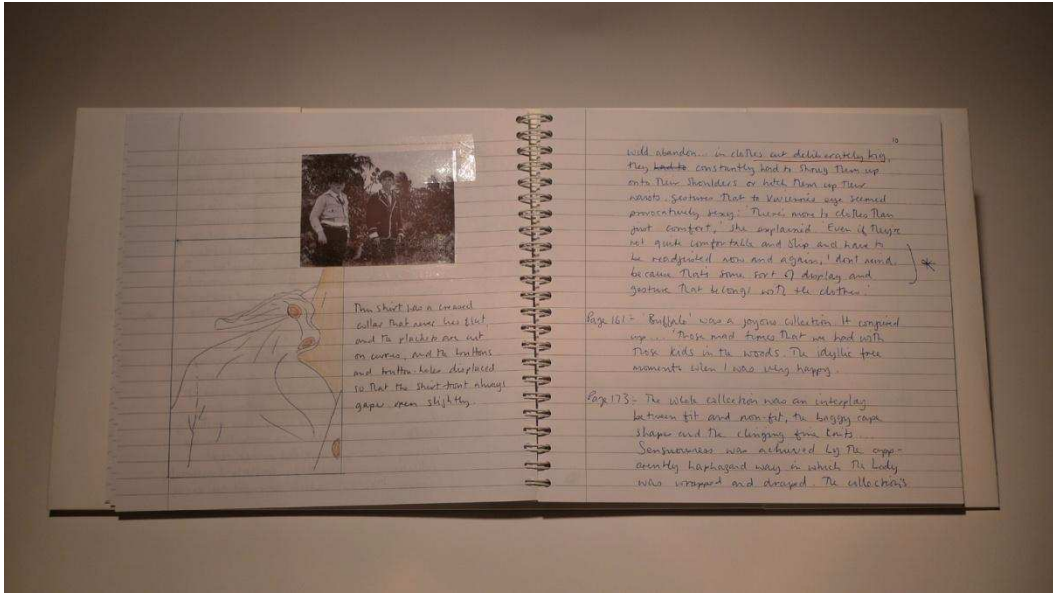 This shirt has a creased
collar that never lies flat,
and the plackets are cut
on curves, and the buttons
and button-holes displaced
so that the shirt-front always
gapes open slightly.
10
wild abandon... in clothes cut deliberately big,
they had to constantly had to shrug them up
onto their shoulders or hitch them up their
waists. Gestures that to Vivienne's eye seemed
provocatively sexy: 'There's more to clothes than
just comfort,' she explained. 'Even if they're
not quite comfortable and slip and have to
be readjusted now and again, I don't mind,
because that's some sort of display and
gesture that belongs with the clothes.'
Page 161:- 'Buffalo' was a joyous collection. It conjured
up... 'those mad times that we had with
those kids in the woods. The idyllic free
moments when I was very happy.
Page 173:- The whole collection was an interplay
between fit and non-fit, the baggy cape
shapes and the clinging fine knits...
Sensuousness was achieved by the app-
arently haphazard way in which the body
was wrapped and draped. The collection's